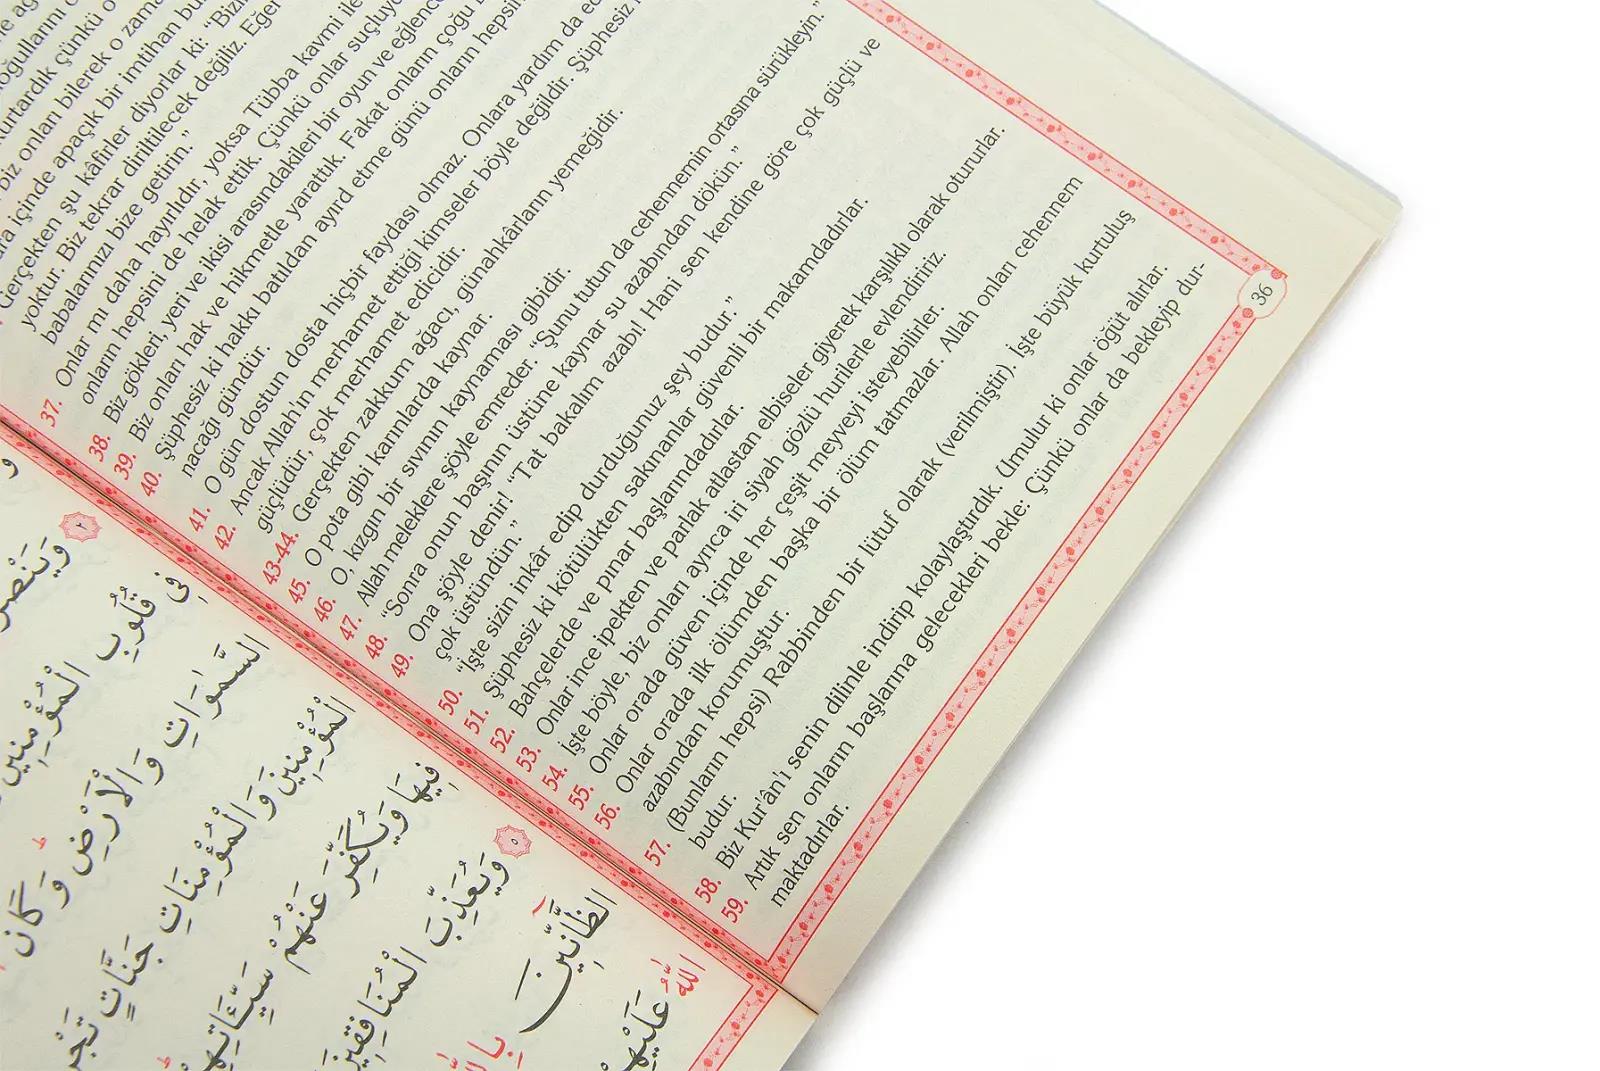 oğullarını
kurtardık çünkü o
biz onları bilerek o zama
içinde apaçık bir imtihan bu
Gerçekten şu kâfirler diyorlar ki: "Bizi
yoktur. Biz tekrar diriltilecek değiliz. Eğer
babalarımızı bize getirin."
37. Onlar mı daha hayırlıdır, yoksa Tübba kavmi ile
onların hepsini de helak ettik. Çünkü onlar suçluy
38. Biz gökleri, yeri ve ikisi arasındakileri bir oyun ve eğlence
39. Biz onları hak ve hikmetle yarattık. Fakat onların çoğu b
40. Şüphesiz ki hakkı batıldan ayırd etme günü onların hepsin
nacağı gündür.
41. O gün dostun dosta hiçbir faydası olmaz. Onlara yardım da ed
42. Ancak Allah'ın merhamet ettiği kimseler böyle değildir. Şüphesiz
güçlüdür, çok merhamet edicidir.
43-44. Gerçekten zakkum ağacı, günahkânların yemeğidir.
45. O pota gibi karınlarda kaynar.
46. O, kızgın bir sıvının kaynaması gibidir.
47. Allah meleklere şöyle emreder: "Şunu tutun da cehennemin ortasına sürükleyin."
48. "Sonra onun başının üstüne kaynar su azabından dökün."
49. Ona şöyle denir! "Tat bakalım azabı! Hani sen kendine göre çok güçlü ve
çok üstündün."
50. "İşte sizin inkâr edip durduğumuz şey budur."
51. Şüphesiz ki kötülükten sakınanlar güvenli bir makamdadırlar.
52. Bahçelerde ve pınar başlarındadırlar.
53. Onlar ince ipekten ve parlak atlastan elbiseler giyerek karşılıklı olarak otururlar.
54. İşte böyle, biz onları ayrıca iri siyah gözlü hurilerle evlendiririz.
55. Onlar orada güven içinde her çeşit meyveyi isteyebilirler.
56. Onlar orada ilk ölümden başka bir ölüm tatmazlar. Allah onları cehennem
azabından korumuştur.
57. (Bunların hepsi) Rabbinden bir lütuf olarak (verilmiştir). İşte büyük kurtuluş
budur.
58. Biz Kur'ân'ı senin dilinle indirip kolaylaştırdık. Umulur ki onlar öğüt alırlar.
59. Artık sen onların başlarına gelecekleri bekle. Çünkü onlar da bekleyip dur-
maktadırlar.
36
٢ وَيَنْصُر
فِى قُلُوبِ الْمُؤْمِنِينَ
السَّمٰوَاتِ وَالْاَرْضِ وَكَانَ
الْمُؤْمِنِينَ وَالْمُؤْمِنَاتِ جَنَّاتٍ تَجْر
فِيهَا وَيُكَفِّرَ عَنْهُمْ سَيِّـَٔاتِهِ
٥ وَيُعَذِّبَ الْمُنَافِقِي
الظَّانِّينَ بِاللّٰ
اللّٰهُ عَلَيْهِ